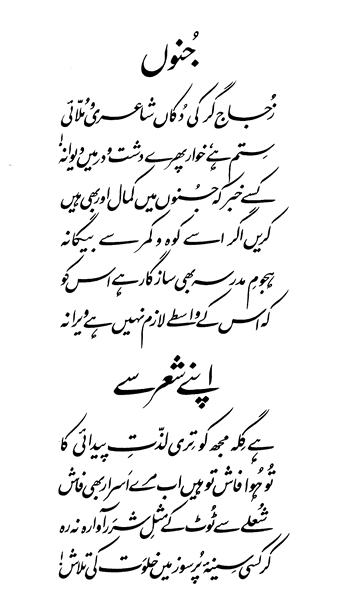 جُنوں
زُجاج گر کی دُکاں شاعری و مُلّائی
سِتم ہے خوار پھرے دشت و در میں دیوانہ!
کسے خبر کہ جُنوں میں کمال اور بھی ہیں
کریں اگر اسے کوہ و کمر سے بیگانہ
ہجومِ مدرسہ بھی سازگار ہے اس کو
کہ اس کے واسطے لازم نہیں ہے ویرانہ
اپنے شعر سے
ہے گِلہ مجھ کو تِری لذّتِ پیدائی کا
تُو ہُوا فاش تو ہیں اب مرے اَسرار بھی فاش
شُعلے سے ٹُوٹ کے مثلِ شرَر آوارہ نہ رہ
کر کسی سِینۂ پُرسوز میں خلوَت کی تلاش!